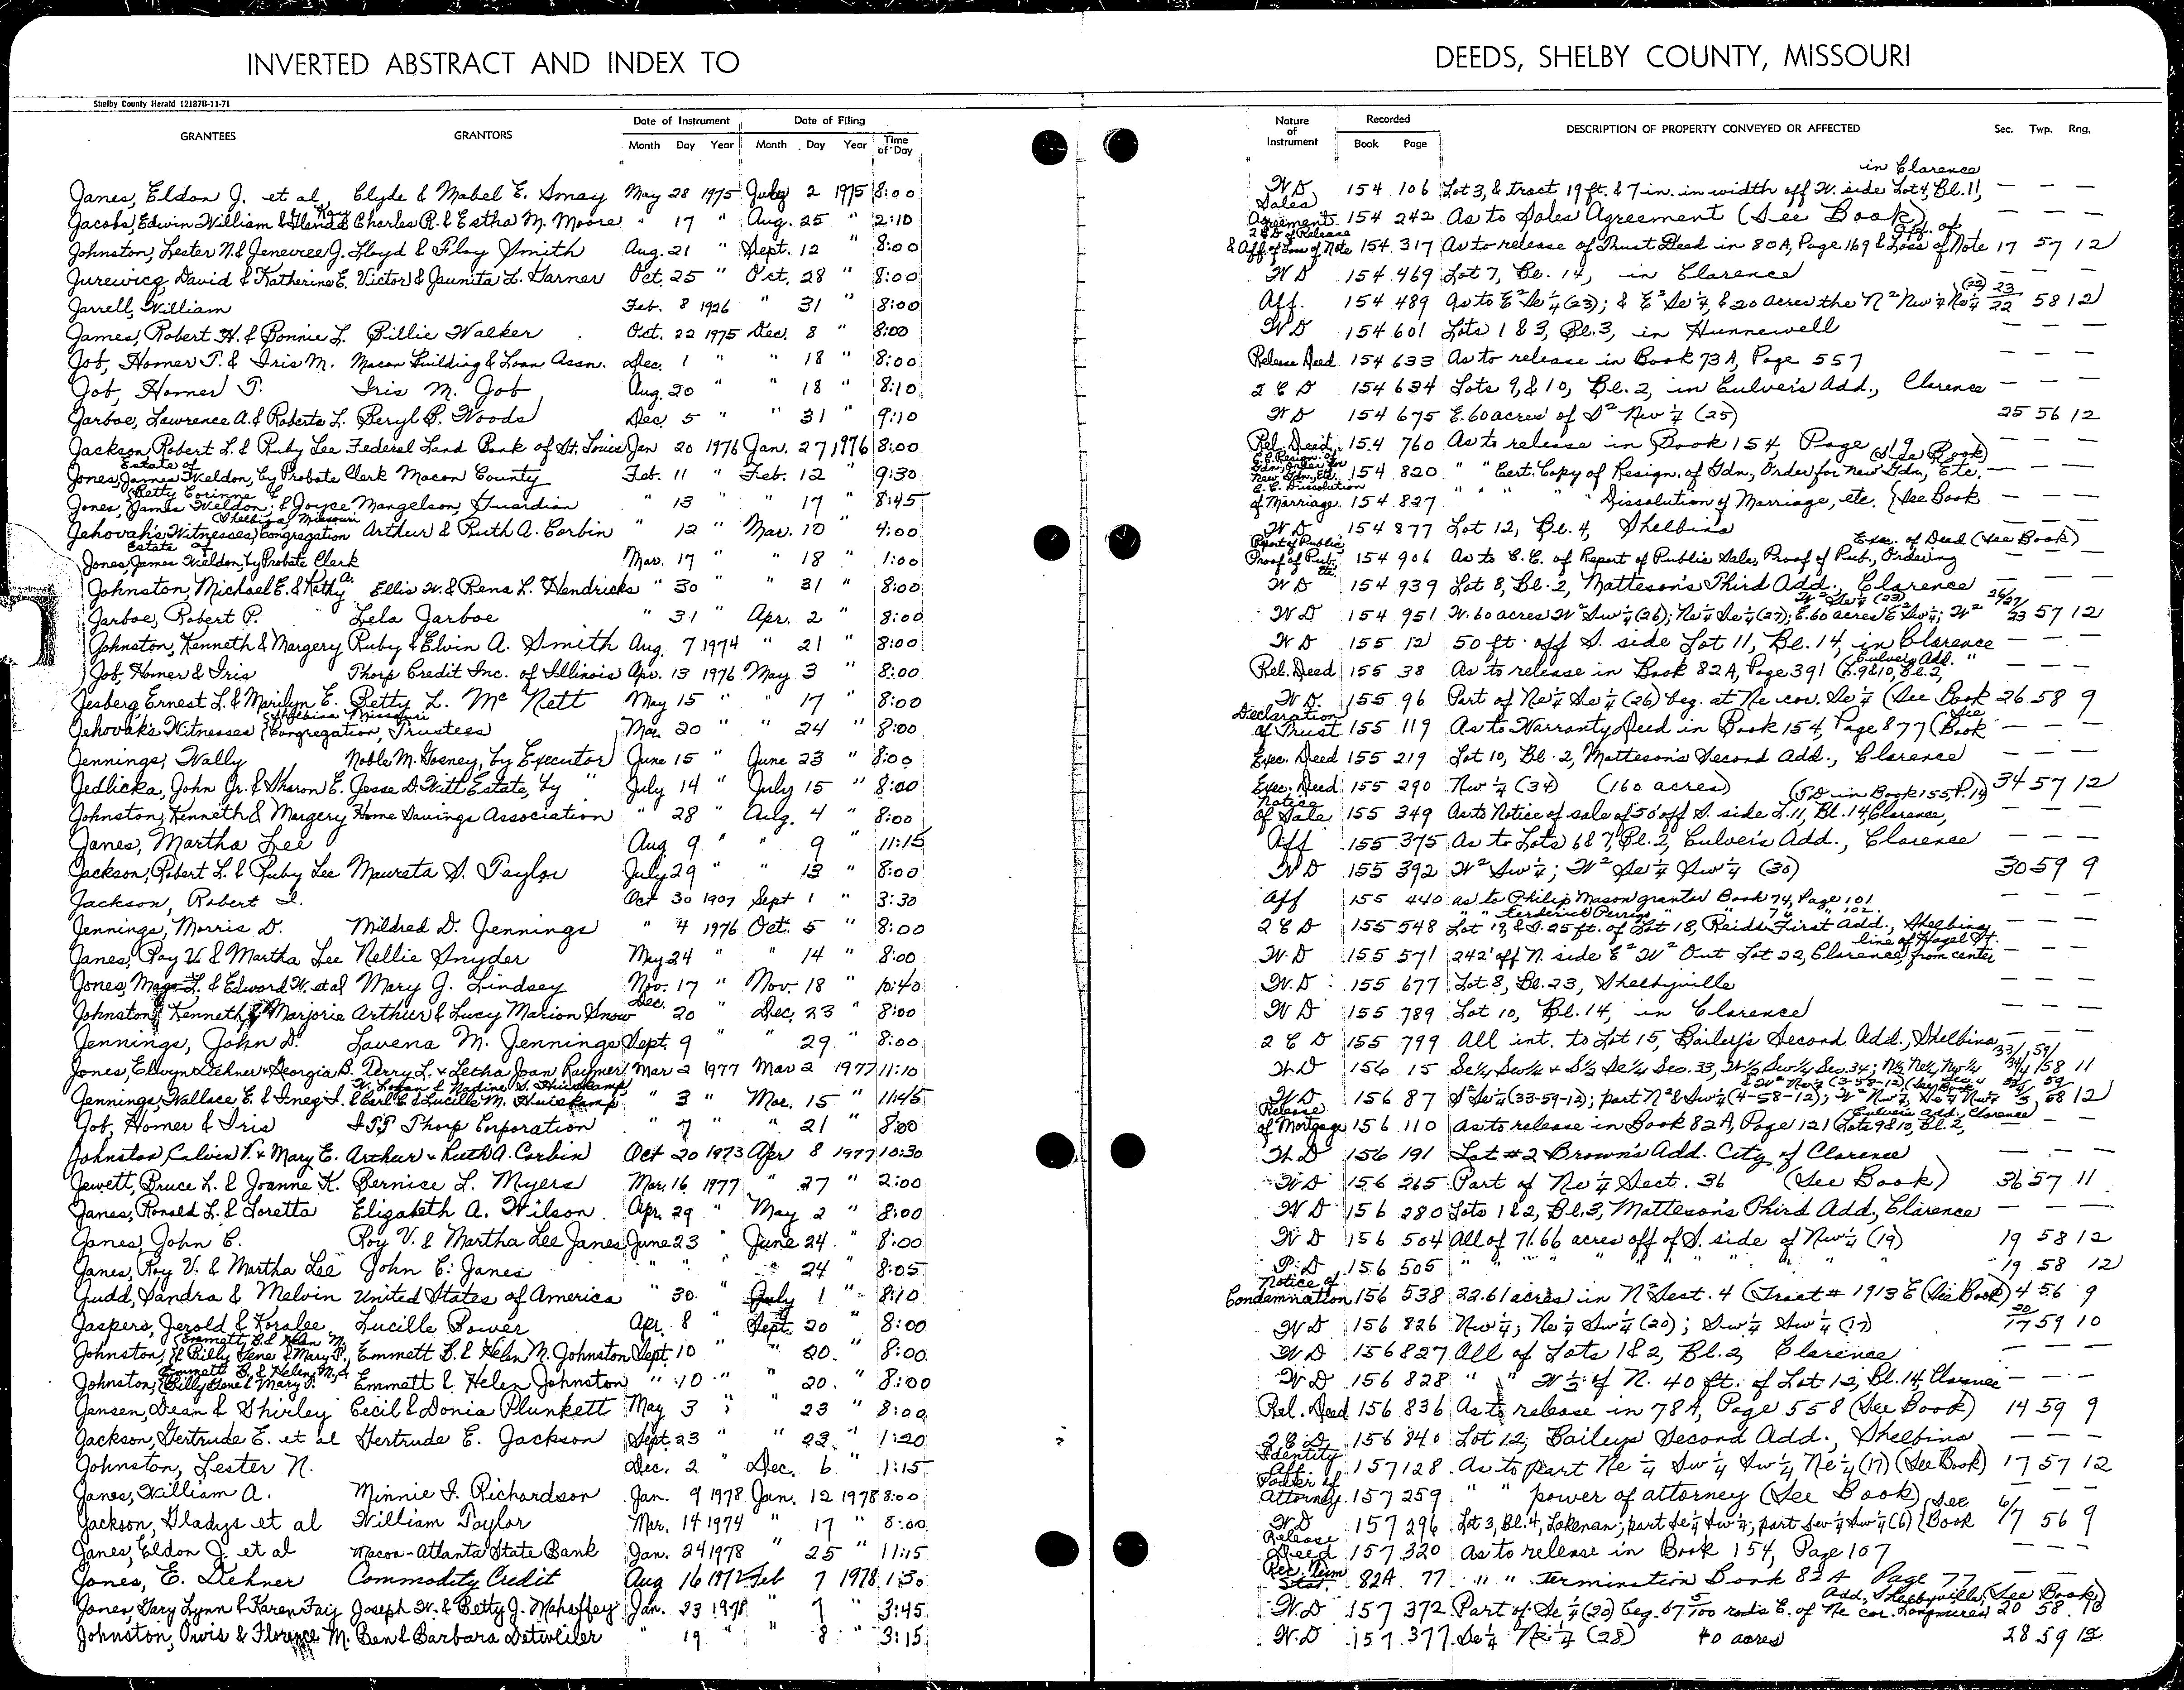 INVERTED ABSTRACT AND INDEX TO
DEEDS, SHELBY COUNTY, MISSOURI
Shelby County Herald 12187B-11-71
GRANTEES GRANTORS Date of Instrument Month Day Year Date of Filing Month Day Year Time of Day Nature of Instrument Recorded Book Page DESCRIPTION OF PROPERTY CONVEYED OR AFFECTED Sec. Twp. Rng.
Janes, Eldon J. et al Clyde & Mabel E. Smay May 28 1975 July 2 1975 8:00 WD 154 106 Lot 3, & tract 19 ft. & 7 in. in width off W. side Lot 4, Bl. 11, in Clarence — — —
Jacobs, Edwin William & Glenda Charles R. & Estha M. Moore " 17 " Aug. 25 " 2:10 Sales Agreement 154 242 As to Sales Agreement (See Book) — — —
Johnston, Lester N. & Genevree J. Lloyd & Floy Smith Aug. 21 " Sept. 12 " 8:00 2 & D of Release & Aff. of Loss of Note 154 317 As to release of Trust Deed in 80A, Page 169 & Aff. of Loss of Note 17 57 12
Jurewicz, David & Katherine E. Victor & Jaunita L. Garner Oct. 25 " Oct. 28 " 8:00 WD 154 469 Lot 7, Bl. 14, in Clarence — — —
Jarrell, William Feb. 8 1926 " 31 " 8:00 Aff. 154 489 As to E² Se ¼ (23); & E² Se ¼, & 20 acres the N² Nw ¼ Ne ¼ (22) 23/22 58 12
James, Robert H. & Bonnie L. Billie Walker Oct. 22 1975 Dec. 8 " 8:00 WD 154 601 Lots 1 & 3, Bl. 3, in Hunnewell — — —
Job, Homer T. & Iris M. Macon Building & Loan Assn. Dec. 1 " " 18 " 8:00 Release Deed 154 633 As to release in Book 73A, Page 557 — — —
Job, Homer T. Iris M. Job Aug. 20 " " 18 " 8:10 2 C D 154 634 Lots 9, & 10, Bl. 2, in Culver's Add., Clarence — — —
Jarboe, Lawrence A. & Roberta L. Beryl B. Woods Dec. 5 " " 31 " 9:10 WD 154 675 E. 60 acres of S² New ¼ (25) 25 56 12
Jackson, Robert L. & Ruby Lee Federal Land Bank of St. Louis Jan 20 1976 Jan. 27 1976 8:00 Rel. Deed 154 760 As to release in Book 154, Page 19 — — —
Jones, James Weldon, Estate of by Probate Clerk Macon County Feb. 11 " Feb. 12 " 9:30 C.C. Resign. of Gdn, Order for New Gdn, Etc. 154 820 " " Cert. Copy of Resign. of Gdn, Order for New Gdn, Etc. (See Book) — — —
Jones, James Weldon, Betty Corinne & Joyce Mangelson, Guardian " 13 17 8:45 C.C. Dissolution of Marriage 154 827 " " " " Dissolution of Marriage, etc. (See Book — — —
Jehovah's Witnesses, Shelbina, Missouri Congregation Arthur & Ruth A. Corbin " 12 " Mar. 10 " 4:00 WD 154 877 Lot 12, Bl. 4, Shelbina — — —
Jones, James Weldon, Estate of by Probate Clerk Mar. 17 " " 18 " 1:00 Report of Public Proof of Pub. etc. 154 906 As to C.C. of Report of Public Sale, Proof of Pub., Ordering Exec. of Deed (See Book)
Johnston, Michael E. & Kathy A. Ellis W. & Rena L. Hendricks " 30 " " 31 " 8:00 WD 154 939 Lot 8, Bl. 2, Matteson's Third Add., Clarence — — —
Jarboe, Robert P. Lela Jarboe " 31 " Apr. 2 " 8:00 WD 154 951 W. 60 acres W² Sw ¼ (26); Ne ¼ Se ¼ (27); E. 60 acres E² Sw ¼; W² W² Se ¼ (23) 26/27/23 57 12
Johnston, Kenneth & Margery Ruby & Elvin A. Smith Aug. 7 1974 " 21 " 8:00 WD 155 12 50 ft. off S. side Lot 11, Bl. 14, in Clarence — — —
Job, Homer & Iris Thorp Credit Inc. of Illinois Apr. 13 1976 May 3 " 8:00 Rel. Deed 155 38 As to release in Book 82A, Page 391 (L. 9 & 10, Bl. 2, Culver's Add. " — — —
Jesberg Ernest L. & Marilyn E. Betty L. McNett May 15 " " 17 " 8:00 WD. 155 96 Part of Ne ¼ Se ¼ (26) beg. at Ne cor. Se ¼ (See Book 26 58 9
Jehovah's Witnesses (Shelbina Missouri Congregation, Trustees) Mar. 20 " " 24 " 8:00 Declaration of Trust 155 119 As to Warranty Deed in Book 154, Page 877 (See Book — — —
Jennings, Wally Noble M. Gosney, by Executor June 15 " June 23 " 8:00 Exec. Deed 155 219 Lot 10, Bl. 2, Matteson's Second Add., Clarence — — —
Jedlicka, John Jr. & Sharon E. Jesse D. Witt Estate, by " July 14 " July 15 " 8:00 Exec. Deed 155 290 Nw ¼ (34) (160 acres) 34 57 12
Johnston, Kenneth & Margery Home Savings Association " 28 " Aug. 4 " 8:00 Notice of Sale 155 349 As to Notice of sale of 50' off S. side L. 11, Bl. 14, Clarence, (SD in Book 155, P. 12) — — —
Janes, Martha Lee Aug 9 " " 9 " 11:15 Aff 155 375 As to Lots 6 & 7, Bl. 2, Culver's Add., Clarence — — —
Jackson, Robert L. & Ruby Lee Maureta S. Taylor July 29 " " 13 " 8:00 WD 155 392 W² Sw ¼; W² Se ¼ Sw ¼ (30) 30 59 9
Jackson, Robert L. Oct 30 1907 Sept 1 " 3:30 Aff 155 440 as to Philip Mason grantor Book 74, Page 101 — — —
" " Ferderick Perrigo " 74 " 102
Jennings, Morris D. Mildred D. Jennings " 4 1976 Oct. 5 " 8:00 2 C D 155 548 Lot 19, & S. 25 ft. of Lot 18, Reids First Add., Shelbina — — —
Janes, Roy V. & Martha Lee Nellie Snyder May 24 " " 14 " 8:00 W.D 155 571 242' off N. side E² W² Out Lot 22, Clarence, from center line of Hagel St. — — —
Jones, & Edward W. et al Mary J. Lindsey Nov. 17 " Nov. 18 " 10:40 W.D 155 677 Lot 8, Bl. 23, Shelbyville — — —
Johnston, Kenneth & Marjorie Arthur & Lucy Marion Snow Dec. 20 " Dec. 23 " 8:00 WD 155 789 Lot 10, Bl. 14, in Clarence — — —
Jennings, John D. Lavena M. Jennings Sept. 9 " 29 " 8:00 2 C D 155 799 All int. to Lot 15, Bailey's Second Add., Shelbina — — —
Jones, Elwyn Dehner & Georgia B. Terry L. & Letha Joan Raymer Mar 2 1977 Mar 2 1977 11:10 WD 156 15 Se¼ Sw¼ & S½ Se¼ Sec. 33, W½ Sw¼ Sec. 34; N½ Ne¼ Nw¼ 33/34/4 59/58 11
Jennings, Wallace E. & Inez I. W. Logan & Nadine S. Huiskamp & Earl C. & Lucille M. Huiskamp " 3 " Mar. 15 " 11:45 WD 156 87 S² Se ¼ (33-59-12); part N² & Sw ¼ (4-58-12); & W² Nw ¼ (3-58-12) (See Book 12
Job, Homer & Iris ITT Thorp Corporation " 7 " " 21 " 8:00 Release of Mortgage 156 110 as to release in Book 82A, Page 121 (Lots 9 & 10, Bl. 2, Culvers Add. Clarence) — —
Johnston, Calvin V. & Mary E. Arthur & Ruth A. Corbin Oct 20 1973 Apr 8 1977 10:30 WD 156 191 Lot #2 Brown's Add. City of Clarence — — —
Jewett, Bruce L. & Joanne K. Bernice L. Myers Mar. 16 1977 " 27 " 2:00 WD 156 265 Part of Ne ¼ Sect. 36 (See Book) 36 57 11
Janes, Ronald L. & Loretta Elizabeth A. Wilson Apr. 29 " May 2 " 8:00 WD 156 280 Lots 1 & 2, Bl. 3, Matteson's Third Add., Clarence — — —
Janes, John C. Roy V. & Martha Lee Janes June 23 " June 24 " 8:00 WD 156 504 All of 71.66 acres off of S. side of Nw ¼ (19) 19 58 12
Janes, Roy V. & Martha Lee John C. Janes " " " " 24 " 8:05 P.D 156 505 " " " " " " " 19 58 12
Judd, Sandra & Melvin United States of America " 30 " July 1 " 8:10 Notice of Condemnation 156 538 22.61 acres in N² Sect. 4 (Tract # 1913 E (See Book) 4 56 9
Jaspers, Jerold & Koralee Lucille Bower Apr. 8 " Sept. 20 " 8:00 WD 156 826 Nw ¼; Ne ¼ Sw ¼ (20); Sw ¼ Sw ¼ (17) 20/17 59 10
Johnston, (Emmett B. & Helen M. & Billy Gene & Mary J. Emmett B. & Helen M. Johnston Sept. 10 " 20. " 8:00 WD 156 827 All of Lots 1 & 2, Bl. 2, Clarence — — —
Johnston, (Emmett B. & Helen M. & Billy Gene & Mary J. Emmett & Helen Johnston " 10 " " 20. " 8:00 WD 156 828 " " W ⅓ of N. 40 ft. of Lot 12, Bl. 14, Clarence — — —
Jensen, Dean & Shirley Cecil & Donia Plunkett May 3 " " 23 " 8:00 Rel. Deed 156 836 As to release in 78A, Page 558 (See Book) 14 59 9
Jackson, Gertrude E. et al Gertrude E. Jackson Sept. 23 " " 23 " 1:20 2 C D 156 840 Lot 12, Baileys Second Add., Shelbina — — —
Johnston, Lester N. Dec. 2 " Dec. 6 " 1:15 Identity Aff. 157 128 As to part Ne ¼ Sw ¼ Sw ¼, Ne ¼ (17) (See Book) 17 57 12
Janes, William A. Minnie I. Richardson Jan. 9 1978 Jan. 12 1978 8:00 Power of Attorney 157 259 " " power of attorney (See Book) — —
Jackson, Gladys et al William Taylor Mar. 14 1974 " 17 " 8:00 WD 157 296 Lot 3, Bl. 4, Lakenan; part Se ¼ Sw ¼; part Sw ¼ Sw ¼ (6) (See Book 6/7 56 9
Janes, Eldon J. et al Macon-Atlanta State Bank Jan. 24 1978 " 25 " 11:15 Release Deed 157 320 as to release in Book 154, Page 107 — — —
Jones, E. Dehner Commodity Credit Aug 16 1972 Feb 7 1978 1:30 Rec. Term Stat. 82A 77 " " termination Book 82A Page 77 — — —
Jones, Gary Lynn & Karen Faij Joseph W. & Betty J. Mahaffey Jan. 23 1978 " 7 " 3:45 W.D 157 372 Part of Se ¼ (20) beg. 67 5/100 rods E. of Ne cor. Longmires Add., Shelbyville, (See Book) 20 58 10
Johnston, Orvis & Florence M. Ben & Barbara Detweiler " 19 " " 8 " 3:15 W.D 157 377 Se ¼ Ne ¼ (28) 40 acres 28 59 12